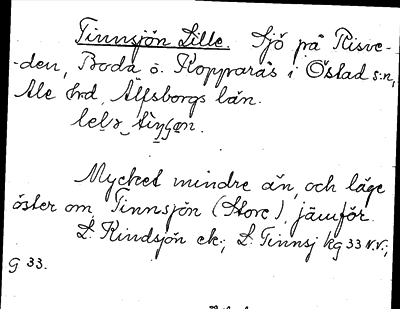 Tinnsjön Lille. Sjö på Risve-
-den, Boda o. Kopparås i Östad s:n,
Ale hrd, Älfsborgs län.
Mycket mindre än, och läge
öster om, Tinnsjön (Store), jämför.
L. Kindsjön ek.; L. Tinnsj kg 33 N.V.;
G 33.